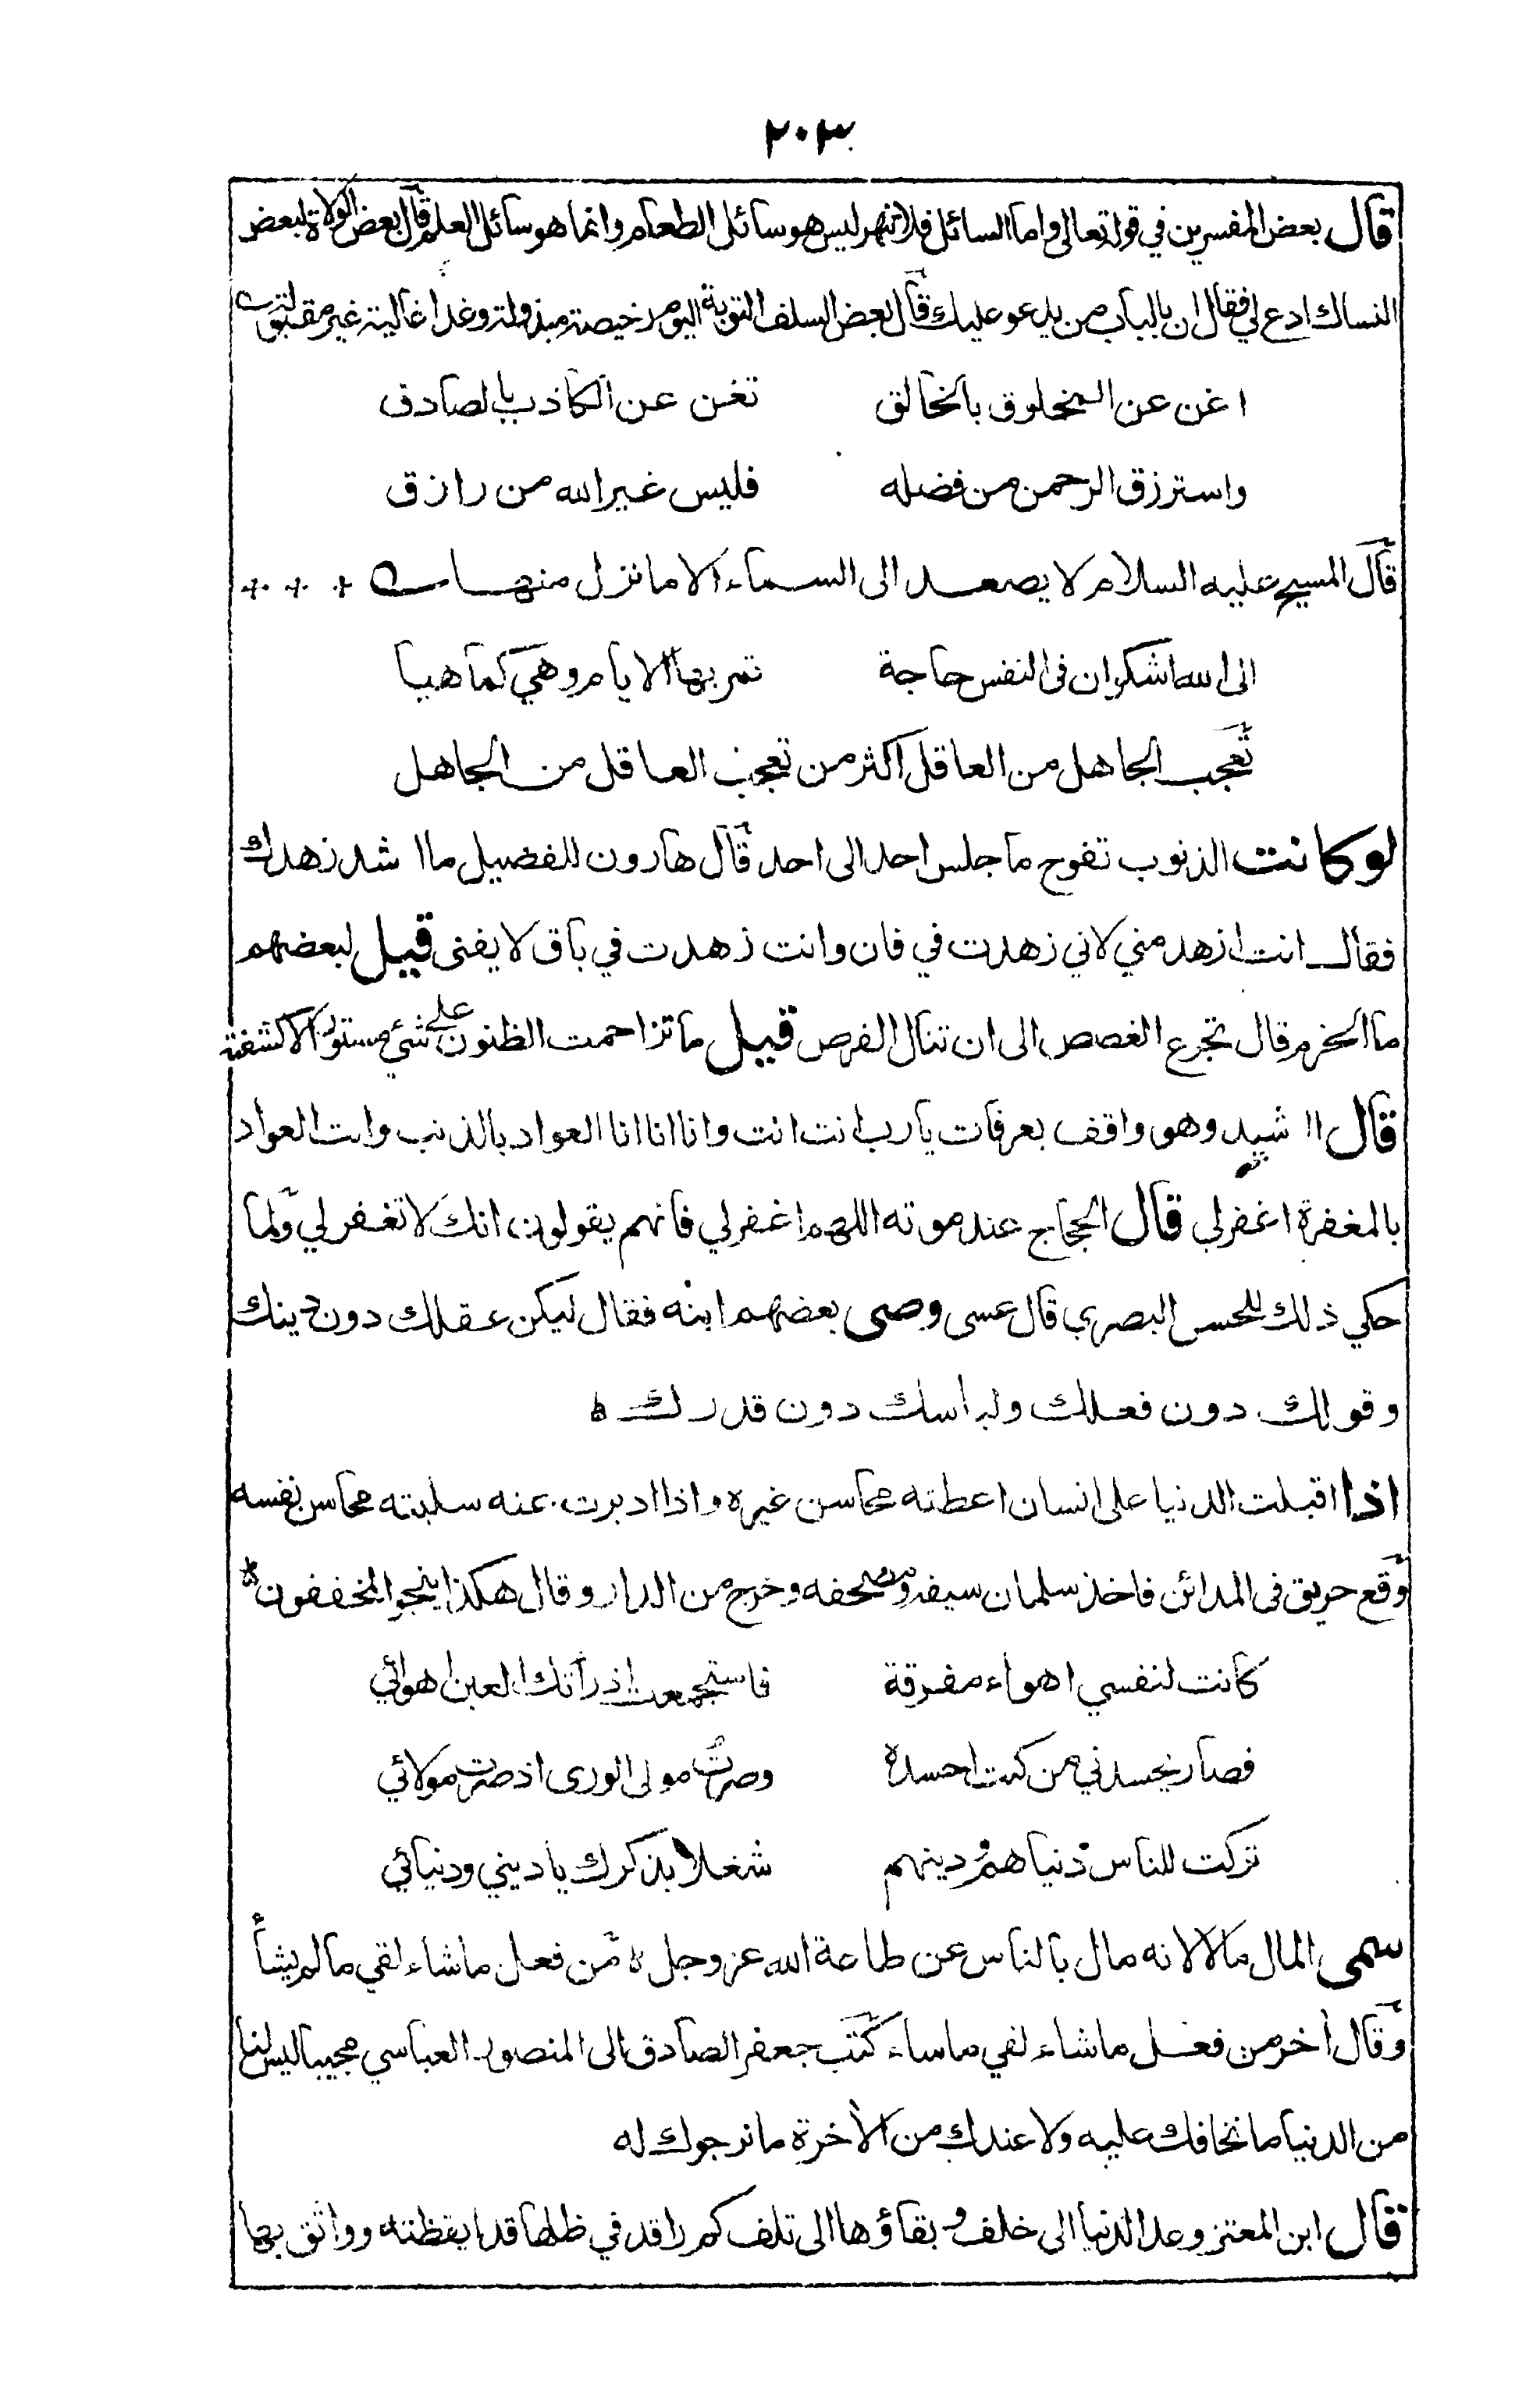 ٢٠٣
قال بعض المفسرين في قوله تعالى واما السائل فلا تنهر ليس هو سائل الطعام وانما هو سائل العلم قال بعض الولاة لبعض
النساك ادع لي فقال ان بالباب من يدعو عليك قال بعض السلف التوبة اليوم رخيصة مبذولة وغدا غالية غير مقبولة
اغن عن المخلوق بالخالق تغن عن الكاذب بالصادق
واسترزق الرحمن من فضله فليس غير الله من رازق
قال المسيح عليه السلام لا يصعد الى السماء الا ما نزل منها
الى الله اشكو ان في النفس حاجة تمر بها الايام وهي كما هيا
تعجب الجاهل من العاقل اكثر من تعجب العاقل من الجاهل
لو كانت الذنوب تفوح ما جلس احد الى احد قال هارون للفضيل ما اشد زهدك
فقال انت ازهد مني لاني زهدت في فان وانت زهدت في باق لا يفنى قيل لبعضهم
ما الحزم قال تجرع الغصص الى ان تنال الفرص قيل ما تزاحمت الظنون على شيء مستور الا كشفته
قال الرشيد وهو واقف بعرفات يا رب انت انت وانا انا انا العواد بالذنب وانت العواد
بالمغفرة اغفر لي قال الحجاج عند موته اللهم اغفر لي فانهم يقولون انك لا تغفر لي ولما
حكي ذلك للحسن البصري قال عسى وصى بعضهم ابنه فقال ليكن عقلك دون دينك
وقولك دون فعلك ولباسك دون قدرك
اذا اقبلت الدنيا على انسان اعطته محاسن غيره واذا ادبرت عنه سلبته محاسن نفسه
وقع حريق في المدائن فاخذ سلمان سيفه ومصحفه وخرج من الدار وقال هكذا ينجو المخففون
كانت لنفسي اهواء مفرقة فاستجمعت اذ رأتك العين اهوائي
فصار يحسدني من كنت احسده وصرت مولى الورى اذ صرت مولائي
تركت للناس دنياهم ودينهم شغلا بذكرك يا ديني ودنيائي
سمى المال مالا لانه مال بالناس عن طاعة الله عز وجل من فعل ما شاء لقي ما لم يشأ
وقال آخر من فعل ما شاء لقي ما ساء كتب جعفر الصادق الى المنصور العباسي مجيبا ليس لنا
من الدنيا ما نخافك عليه ولا عندك من الآخرة ما نرجوك له
قال ابن المعتز وعد الدنيا الى خلف وبقاؤها الى تلف كم راقد في ظلها قد ايقظته وواثق بها